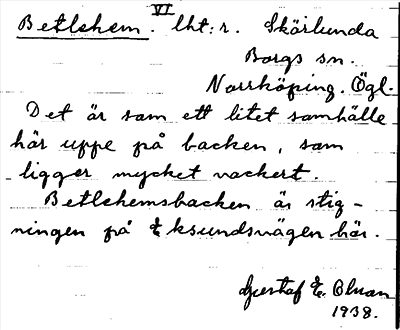 VI
Betlehem. lht:r. Skärlunda
Borgs sn.
Norrköping. Ögl.
Det är som ett litet samhälle
här uppe på backen, som
ligger mycket vackert.
Betlehemsbacken är stig-
ningen på Eksundsvägen här.
Gustaf E. Olsson
1938.